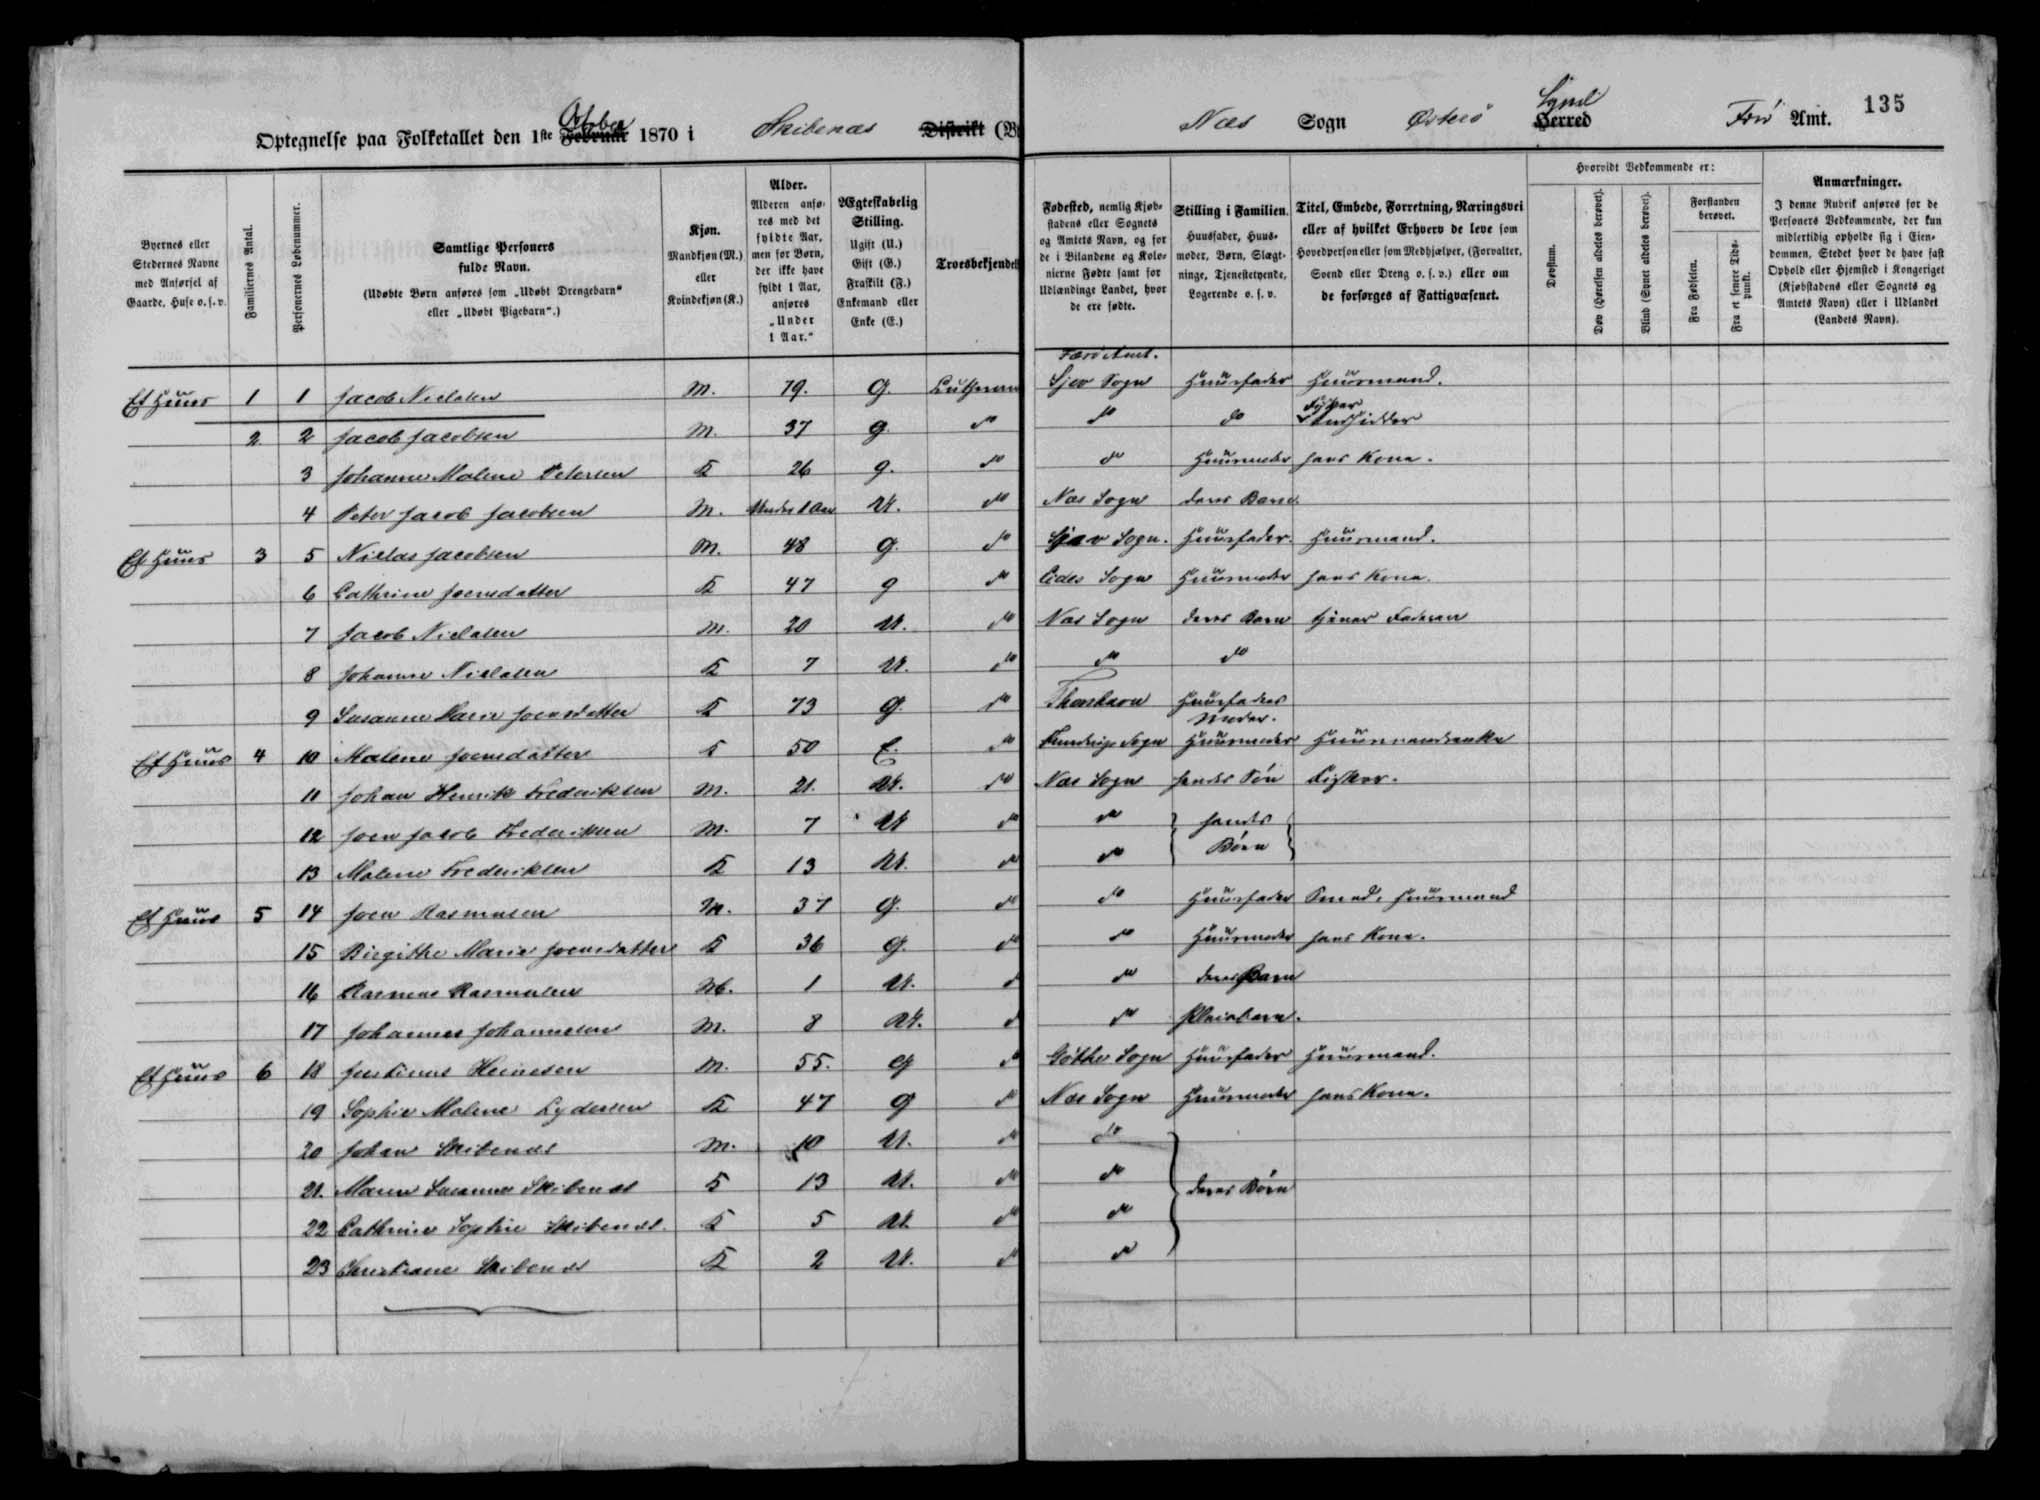 135
October
Optegnelse paa Folketallet den 1ste Februar 1870 i Skibenæs Distrikt
Næs Sogn Østerø Syssel Herred Færø Amt.
Byernes eller Stedernes Navne med Anførsel af Gaarde, Huse o. s. v.
Familiernes Antal.
Personernes Løbenummer.
Samtlige Personers fulde Navn.
(Udøbte Børn anføres som „Udøbt Drengebarn“ eller „Udøbt Pigebarn“.)
Kjøn.
Mandkjøn (M.) eller Kvindekjøn (K.)
Alder.
Alderen anføres med det fyldte Aar, men for Børn, der ikke have fyldt 1 Aar, anføres „Under 1 Aar.“
Ægteskabelig Stilling.
Ugift (U.) Gift (G.) Fraskilt (F.) Enkemand eller Enke (E.)
Troesbekjendel
Fødested, nemlig Kjøbstadens eller Sognets og Amtets Navn, og for de i Bilandene og Kolonierne Fødte samt for Udlændinge Landet, hvor de ere fødte.
Stilling i Familien.
Huusfader, Huusmoder, Børn, Slægtninge, Tjenestetyende, Logerende o. s. v.
Titel, Embede, Forretning, Næringsvei eller af hvilket Erhverv de leve som Hovedperson eller som Medhjælper, (Forvalter, Svend eller Dreng o. s. v.) eller om de forsørges af Fattigvæsenet.
Hvorvidt Vedkommende er:
Døvstum.
Døv (Hørelsen aldeles berøvet).
Blind (Synet aldeles berøvet).
Forstanden berøvet.
Fra Fødselen.
Fra et senere Tidspunkt.
Anmærkninger.
I denne Rubrik anføres for de Personers Vedkommende, der kun midlertidig opholde sig i Eiendommen, Stedet hvor de have fast Ophold eller Hjemsted i Kongeriget (Kjøbstadens eller Sognets og Amtets Navn) eller i Udlandet (Landets Navn).
Færø Amt.
Et Huus 1 1 Jacob Nielsen M. 79. G. Lutheran Sjov Sogn Huusfader Huusmand.
2 2 Jacob Jacobsen M. 37 g. do do do Fisker Indsidder
3 Johanne Malene Petersen K 26 g. do do Huusmoder hans Kone.
4 Peter Jacob Jacobsen M. Under 1 Aar U. do Næs Sogn deres Barn.
Et Huus 3 5 Niclas Jacobsen M. 48 G. do Sjov Sogn. Huusfader. Huusmand.
6 Cathrine Joensdatter K 47 g do Eides Sogn Huusmoder hans Kone.
7 Jacob Nielsen M. 20 U. do Næs Sogn deres Barn tjener Faderen
8 Johanne Nielsen K 7 U. do do do
9 Susanne Marie Joensdatter K 73 G. do Thorshavn Huusfaders Moder.
Et Huus 4 10 Malene Joensdatter K 50 E. do Sogn Huusmoder Huusmandsenke
11 Johan Henrik Frederiksen M. 21. U. do Næs Sogn hendes Søn Fisker.
12 Joen Jacob Frederiksen M. 7 U do do hendes
13 Malene Frederiksen K 13 U. do do Børn
Et Huus 5 14 Joen Rasmusen M. 37 G. do do Huusfader Smed, Huusmand
15 Birgithe Marie Joensdatter K 36 G. do do Huusmoder hans Kone.
16 Rasmus Rasmusen M. 1 U. do do deres Barn
17 Johannes Johannesen M. 8 U. do do Pleiebarn.
Et Huus 6 18 Justinus Heinesen M. 55. G do Gøthe Sogn Huusfader Huusmand.
19 Sophie Malene Lydersen K 47 G do Næs Sogn Huusmoder hans Kone.
20 Johan Skibenæs M. 10 U. do do
21. Maren Susanne Skibenæs K 13 U. do do deres Børn
22 Cathrine Sophie Skibenæs. K 5 U. do do
23 Christiane Skibenæs K 2 U. do do